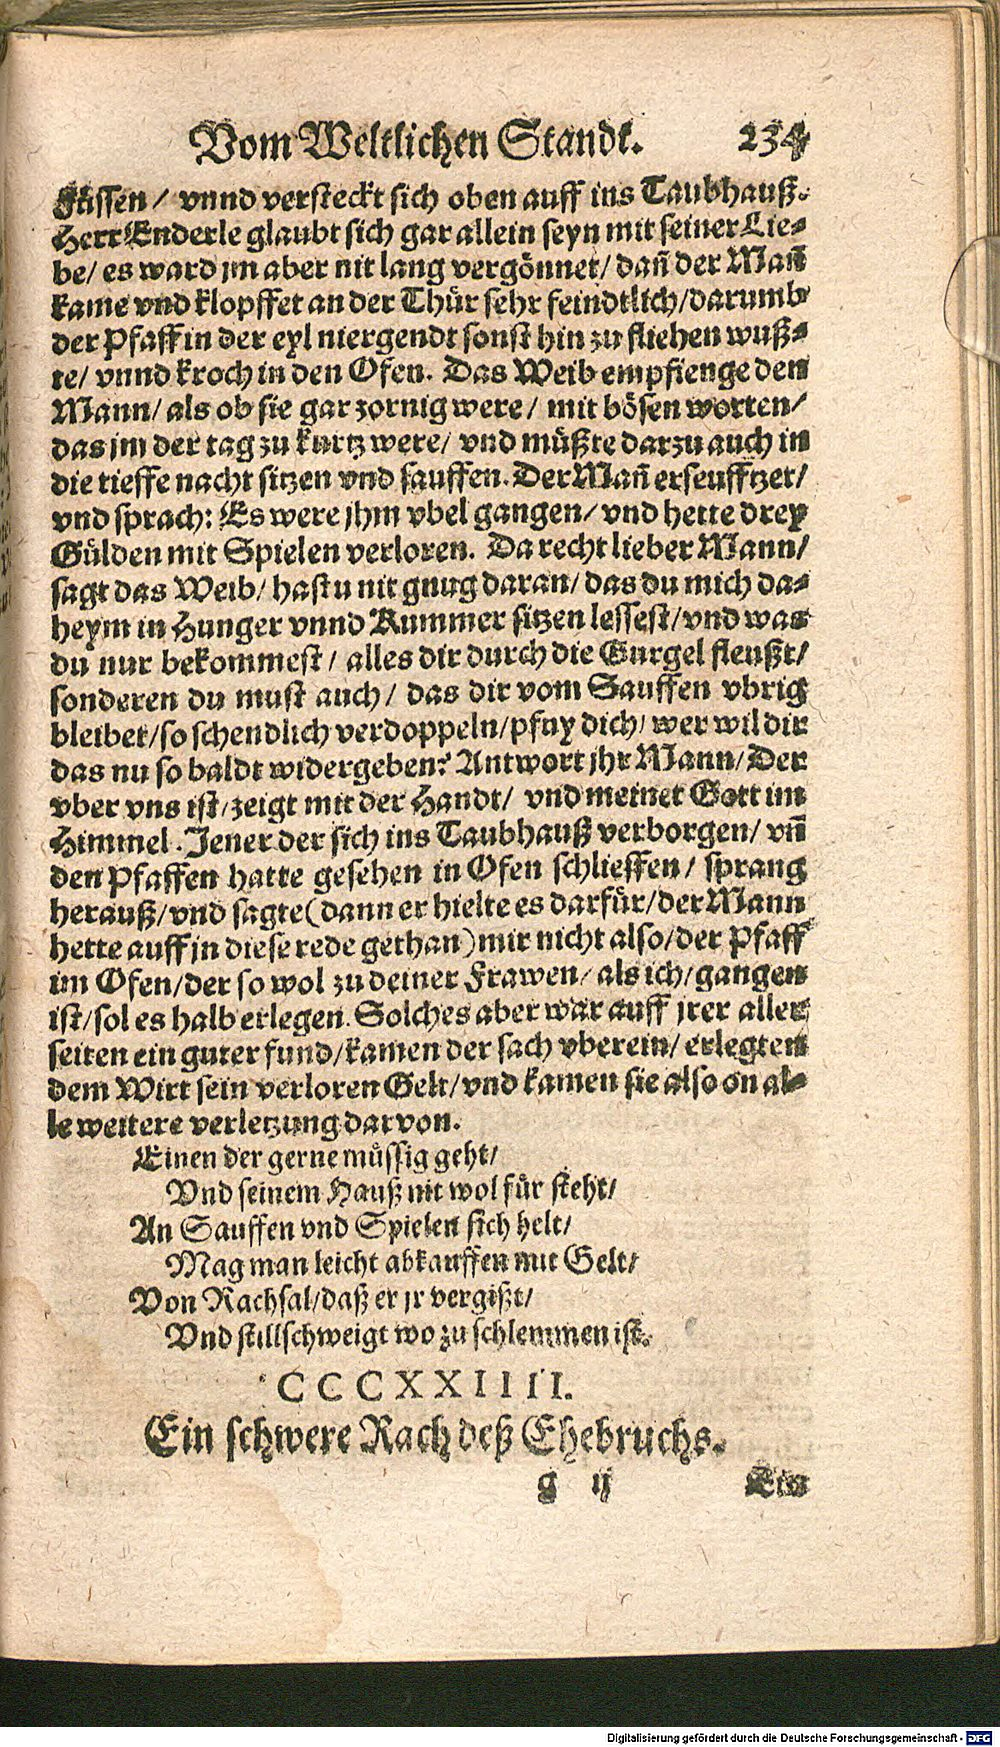 Vom Weltlichen Standt. 234
Füssen / vnnd versteckt sich oben auff ins Taubhauß.
Herr Enderle glaubt sich gar allein seyn mit seiner Lie-
be/ es ward jm aber nit lang vergönnet/ dañ der Mañ
kame vnd klopffet an der Thür sehr feindtlich/darumb
der Pfaff in der eyl niergendt sonst hin zu fliehen wuß-
te/ vnnd kroch in den Ofen. Das Weib empfienge den
Mann/ als ob sie gar zornig were/ mit bösen worten/
das jm der tag zu kurtz were/ vnd müßte darzu auch in
die tieffe nacht sitzen vnd sauffen. Der Mañ erseufftzet/
vnd sprach: Es were jhm vbel gangen/ vnd hette drey
Gülden mit Spielen verloren. Da recht lieber Mann/
sagt das Weib/ hastu nit gnug daran/ das du mich da-
heym in Hunger vnnd Kummer sitzen lessest/vnd was
du nur bekommest / alles dir durch die Gurgel fleußt/
sonderen du must auch/ das dir vom Sauffen vbrig
bleibet/so schendlich verdoppeln/pfuy dich/ wer wil dir
das nu so baldt widergeben? Antwort jhr Mann/ Der
vber vns ist/zeigt mit der Handt/ vnd meinet Gott im
Himmel. Jener der sich ins Taubhauß verborgen/ vñ
den Pfaffen hatte gesehen in Ofen schlieffen/ sprang
herauß/vnd sagte(dann er hielte es darfür/der Mann
hette auff jn diese rede gethan)mir nicht also/der Pfaff
im Ofen/der so wol zu deiner Frawen/ als ich/gangen
ist/sol es halb erlegen. Solches aber war auff jrer aller
seiten ein guter fund/kamen der sach vberein/ erlegten
dem Wirt sein verloren Gelt/vnd kamen sie also on al-
le weitere verletzung darvon.
Einen der gerne müssig geht/
Vnd seinem Hauß nit wol für steht/
An Sauffen vnd Spielen sich helt/
Mag man leicht abkauffen mit Gelt/
Von Rachsal/daß er jr vergißt/
Vnd stillschweigt wo zu schlemmen ist.
CCCXXIIII.
Ein schwere Rach deß Ehebruchs.
g ij Ein
Digitalisierung gefördert durch die Deutsche Forschungsgemeinschaft - DFG